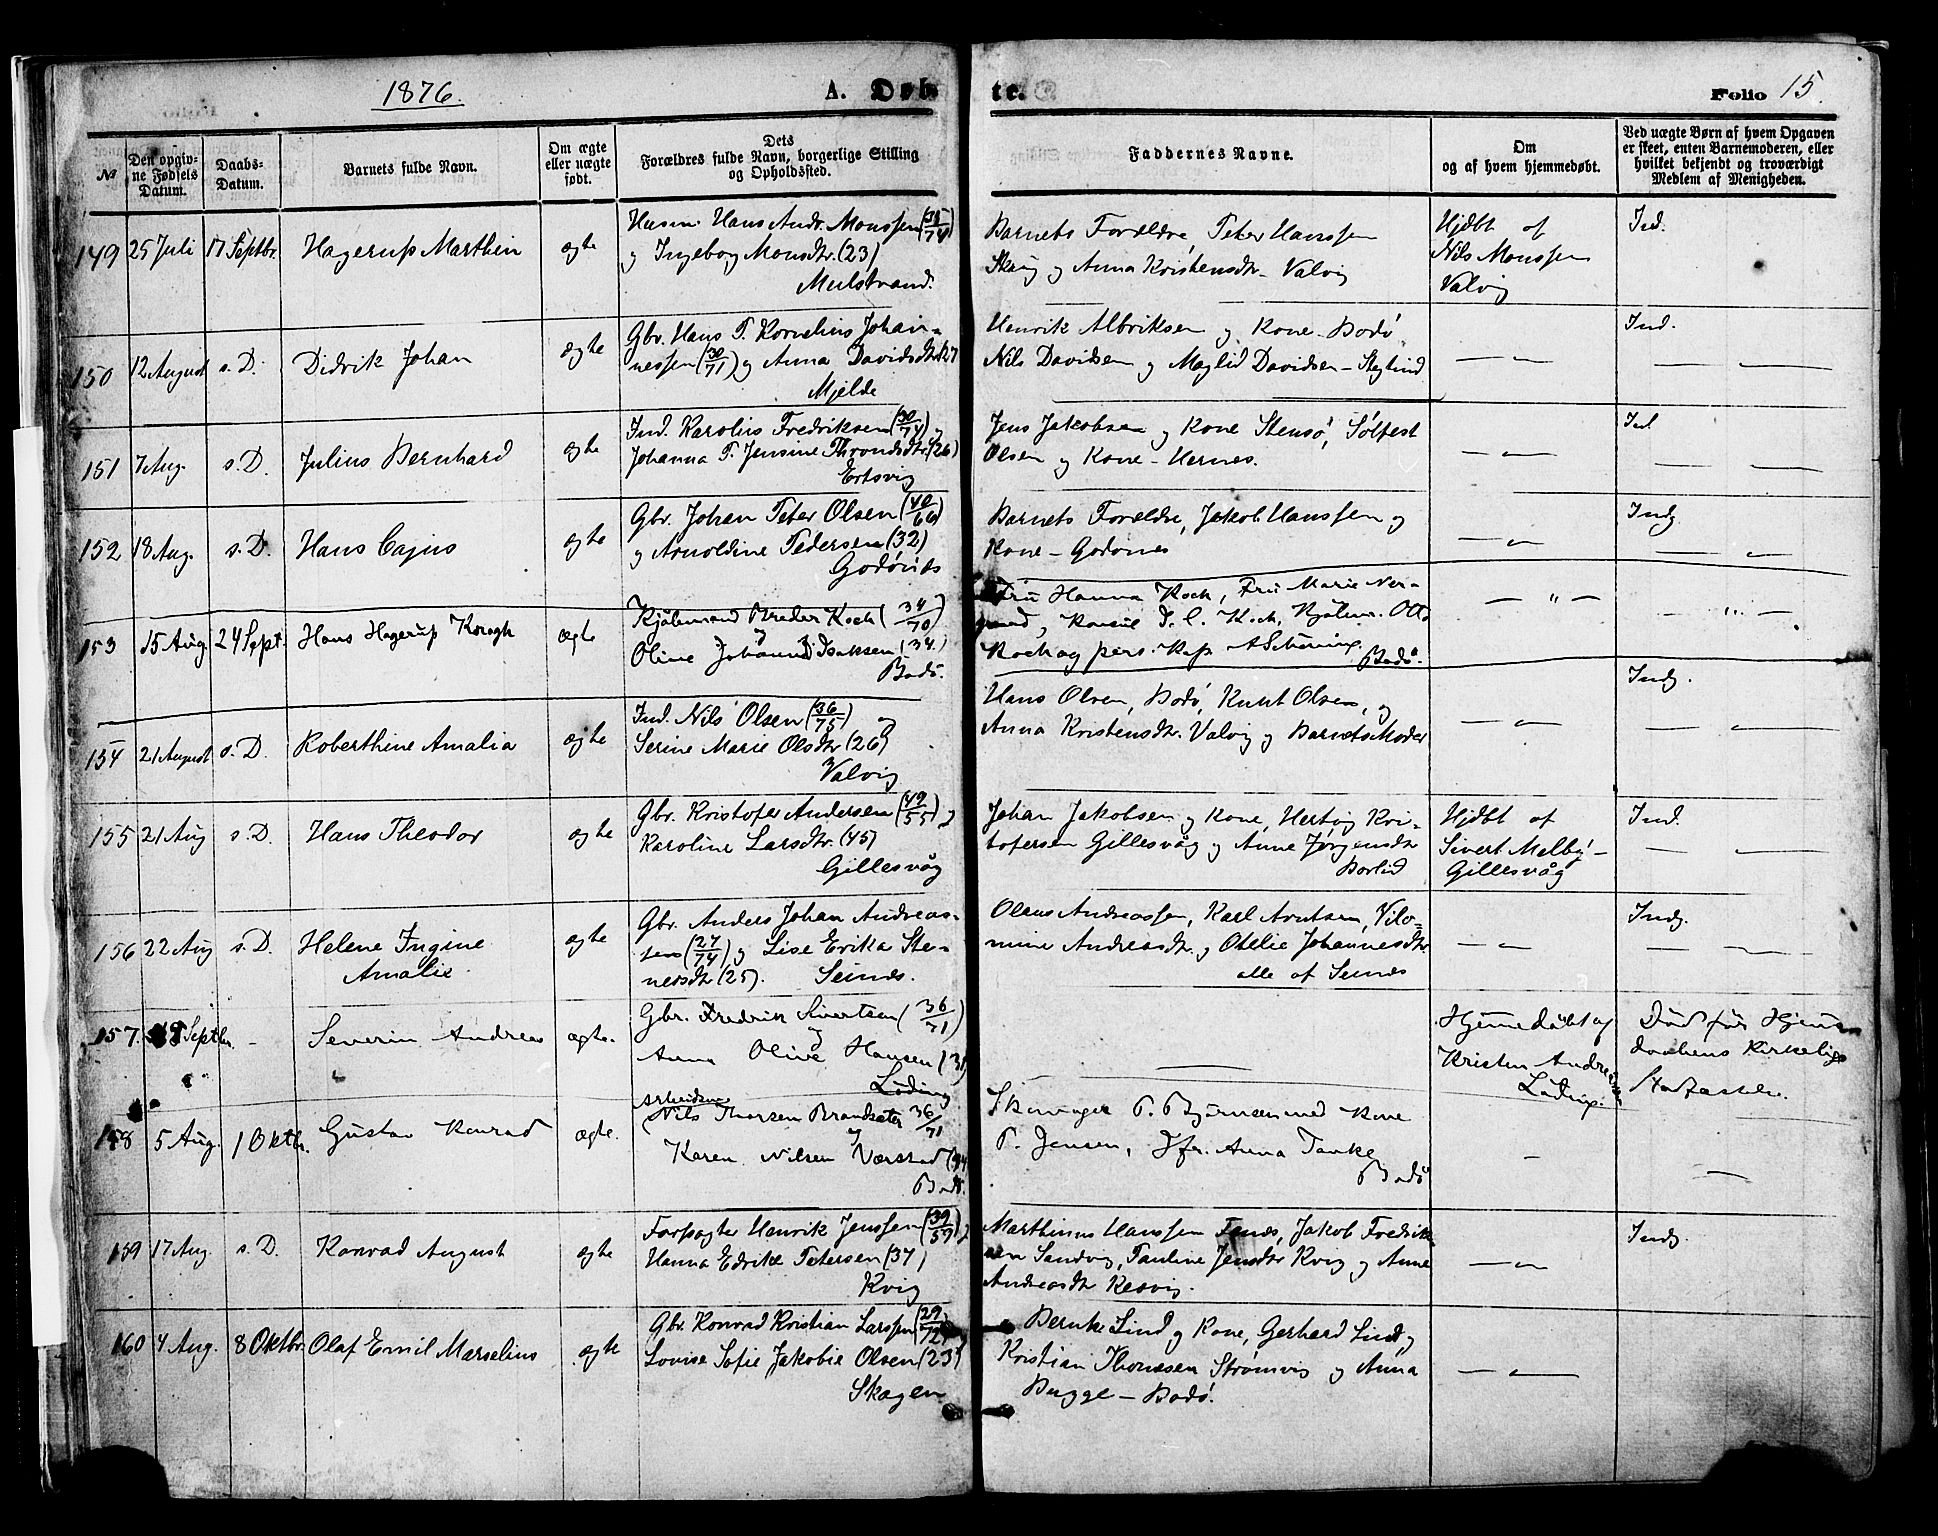 1876.
A. Døbte.
Folio 15.
№
Den opgivne Fødsels Datum.
Daabs-Datum.
Barnets fulde Navn.
Om ægte eller uægte født.
Dets Forældres fulde Navn, borgerlige Stilling og Opholdssted.
Faddernes Navne.
Om og af hvem hjemmedøbt.
Ved uægte Børn af hvem Opgaven er skeet, enten Barnemoderen, eller hvilket bekjendt og troværdigt Medlem af Menigheden.
149 25 Juli 17 Septbr. Hagerup Marthin ægte
Husm. Hans Andr. Monssen (38/74)
og Ingeborg Monsdtr. (23)
Mulstrand.
Barnets Forældre, Peter Hanssen
Skaug og Anna Kristensdtr. Valvig
Hjdbt af
Nils Monssen
Valvig
Ind.
150 12 August s. D. Didrik Johan ægte
Gbr. Hans P. Kornelius Johan-
nessen (30/71) og Anna Davidsdtr (27
Mjelde
Henrik Albriksen og Kone - Bodø,
Nils Davidsen og Maglid Davidsen - Skeglind
Ind.
151 7 Aug. s. D. Julius Bernhard ægte
Ind. Karolius Fredriksen (30/74) og
Johanna P. Jensine Throndsdtr. (26)
Ertsvig
Jens Jakobsen og Kone Stensø, Sølfest
Olsen og Kone - Hernes.
Ind
152 18 Aug. s. D. Hans Cajus ægte
Gbr. Johan Peter Olsen (40/66)
og Arnoldine Pedersen (32)
Godønes
Barnets Forældre, Jakob Hanssen og
Kone - Godønes
Indg.
153 15 Aug. 24 Sept. Hans Hagerup Krogh ægte
Kjøbmand Breder Koch (34/70)
og
Oline Johanne Isaksen (34.)
Bodø.
Fru Hanna Koch, Fru Marie Ner-
gaard, Konsul J. C. Koch, Kjøbm. Otto
Koch og pers. Kap. A Schøning.
Bodø.
154 21 August s. D. Roberthine Amalia ægte
Ind. Nils Olsen (36/75) og
Serine Marie Olsdtr (26)
Valvig
Hans Olsen, Bodø, Knut Olsen, og
Anna Kristensdtr. Valvig og Barnets Moder
Indg.
155 21 Aug s. D. Hans Theodor ægte
Gbr. Kristofer Andersen (49/55) og
Karoline Larsdtr. (45)
Gillesvåg
Johan Jakobsen og Kone, Hertvig Kri-
stofersen Gillesvåg og Anne Jørgensdtr
Hjdbt af
Sivert Melby -
Gillesvåg
Ind.
156 22 Aug s. D. Helene Ingine
Amalie. ægte
Gbr. Anders Johan Andreas-
sen (27/74) og Lise Erika Ste-
nersdtr (25). Seines.
Olaus Andreassen, Karl Arntsen, Vilo-
mine Andreasdtr. og Otelie Johannesdtr
alle af Seines
Indg.
157. 18 Septbr. - Severin Andreas ægte.
Gbr. Fredrik Sivertsen (36/71)
og
Anna Olive Hansen (31)
Løding
Hjemmedøbt af
Kristen Andreassen
Løding.
Død før Hjemme-
daabens Kirkelige
Stadfæstelse.
158 5 Aug. 1 Oktbr. Gustav Konrad ægte.
Arbeidsm.
Nils Thorsen Brandsæter 36/71
og
Karen Nilsen Værstad (34
Bodø.
Skomager P. Bjørnsen med Kone
P. Jensen, Jfr. Anna Tanke
Bodø
159 17 Aug. s. D. Konrad August ægte
Forpagter Henrik Jenssen (39/59) og
Hanna Edrike Petersen (37)
Kvig
Marthinus Hanssen Fenes, Jakob Fredrik-
sen Sandvig, Pauline Jensdtr Kvig og Anne
Andreasdtr
Indg.
160 4 Aug. 8 Oktbr. Olaf Emil Marselius ægte
Gbr. Konrad Kristian Larssen (29/72) og
Lovise Sofie Jakobie Olsen (23)
Skagen
Bernt Lind og Kone, Gerhard Lind, og
Kristian Thomesen Strømsvig og Anna
Bugge - Bodø.